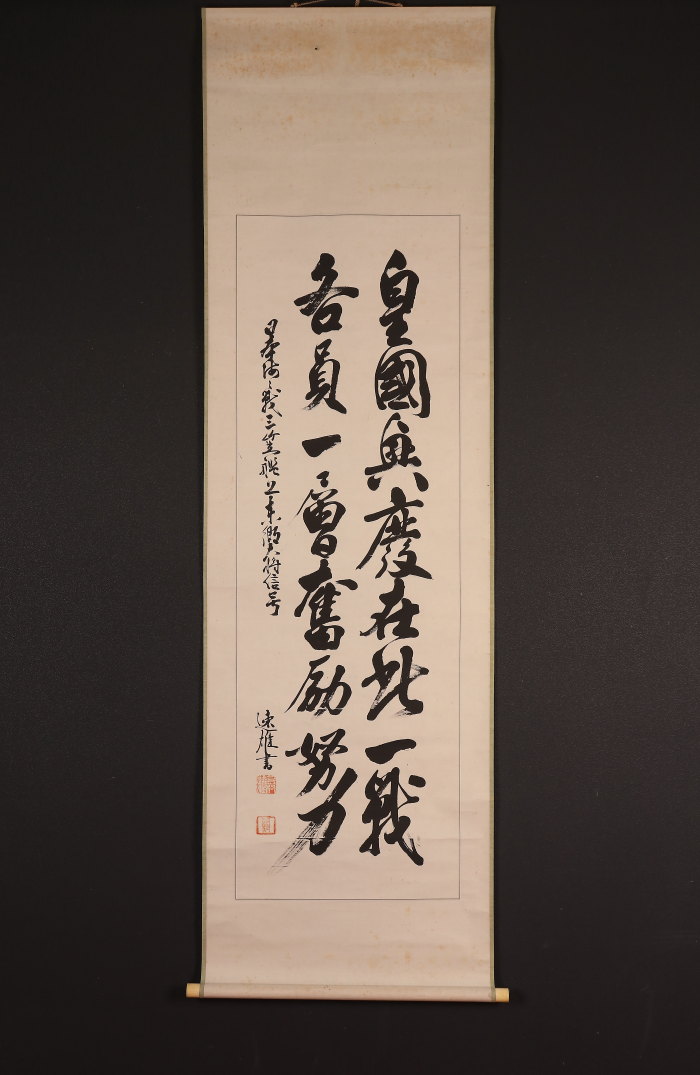 皇國興廢在此一戰
各員一層奮励努力
日本海々戰三笠艦上東郷大将信号
速雄書